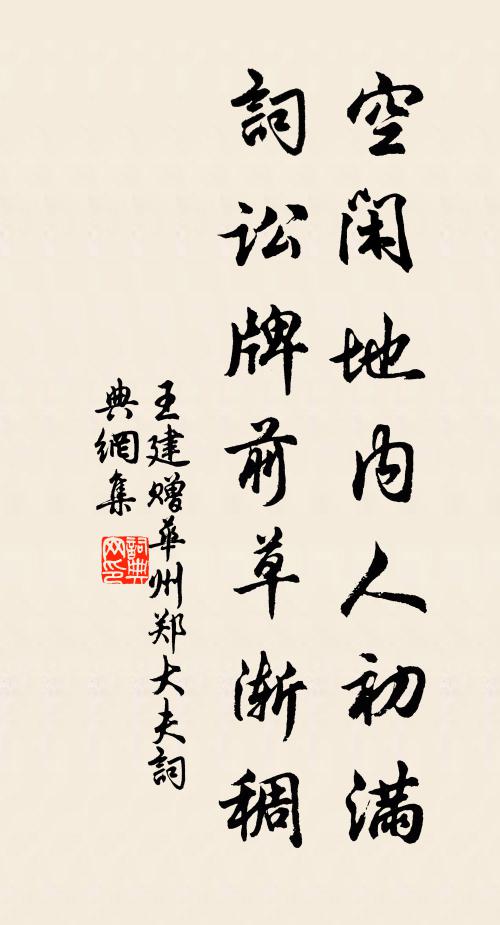 空闲地内人初满
詞讼牌前草渐稠
王建赠華州郑大夫詞
典網集
詞典网印